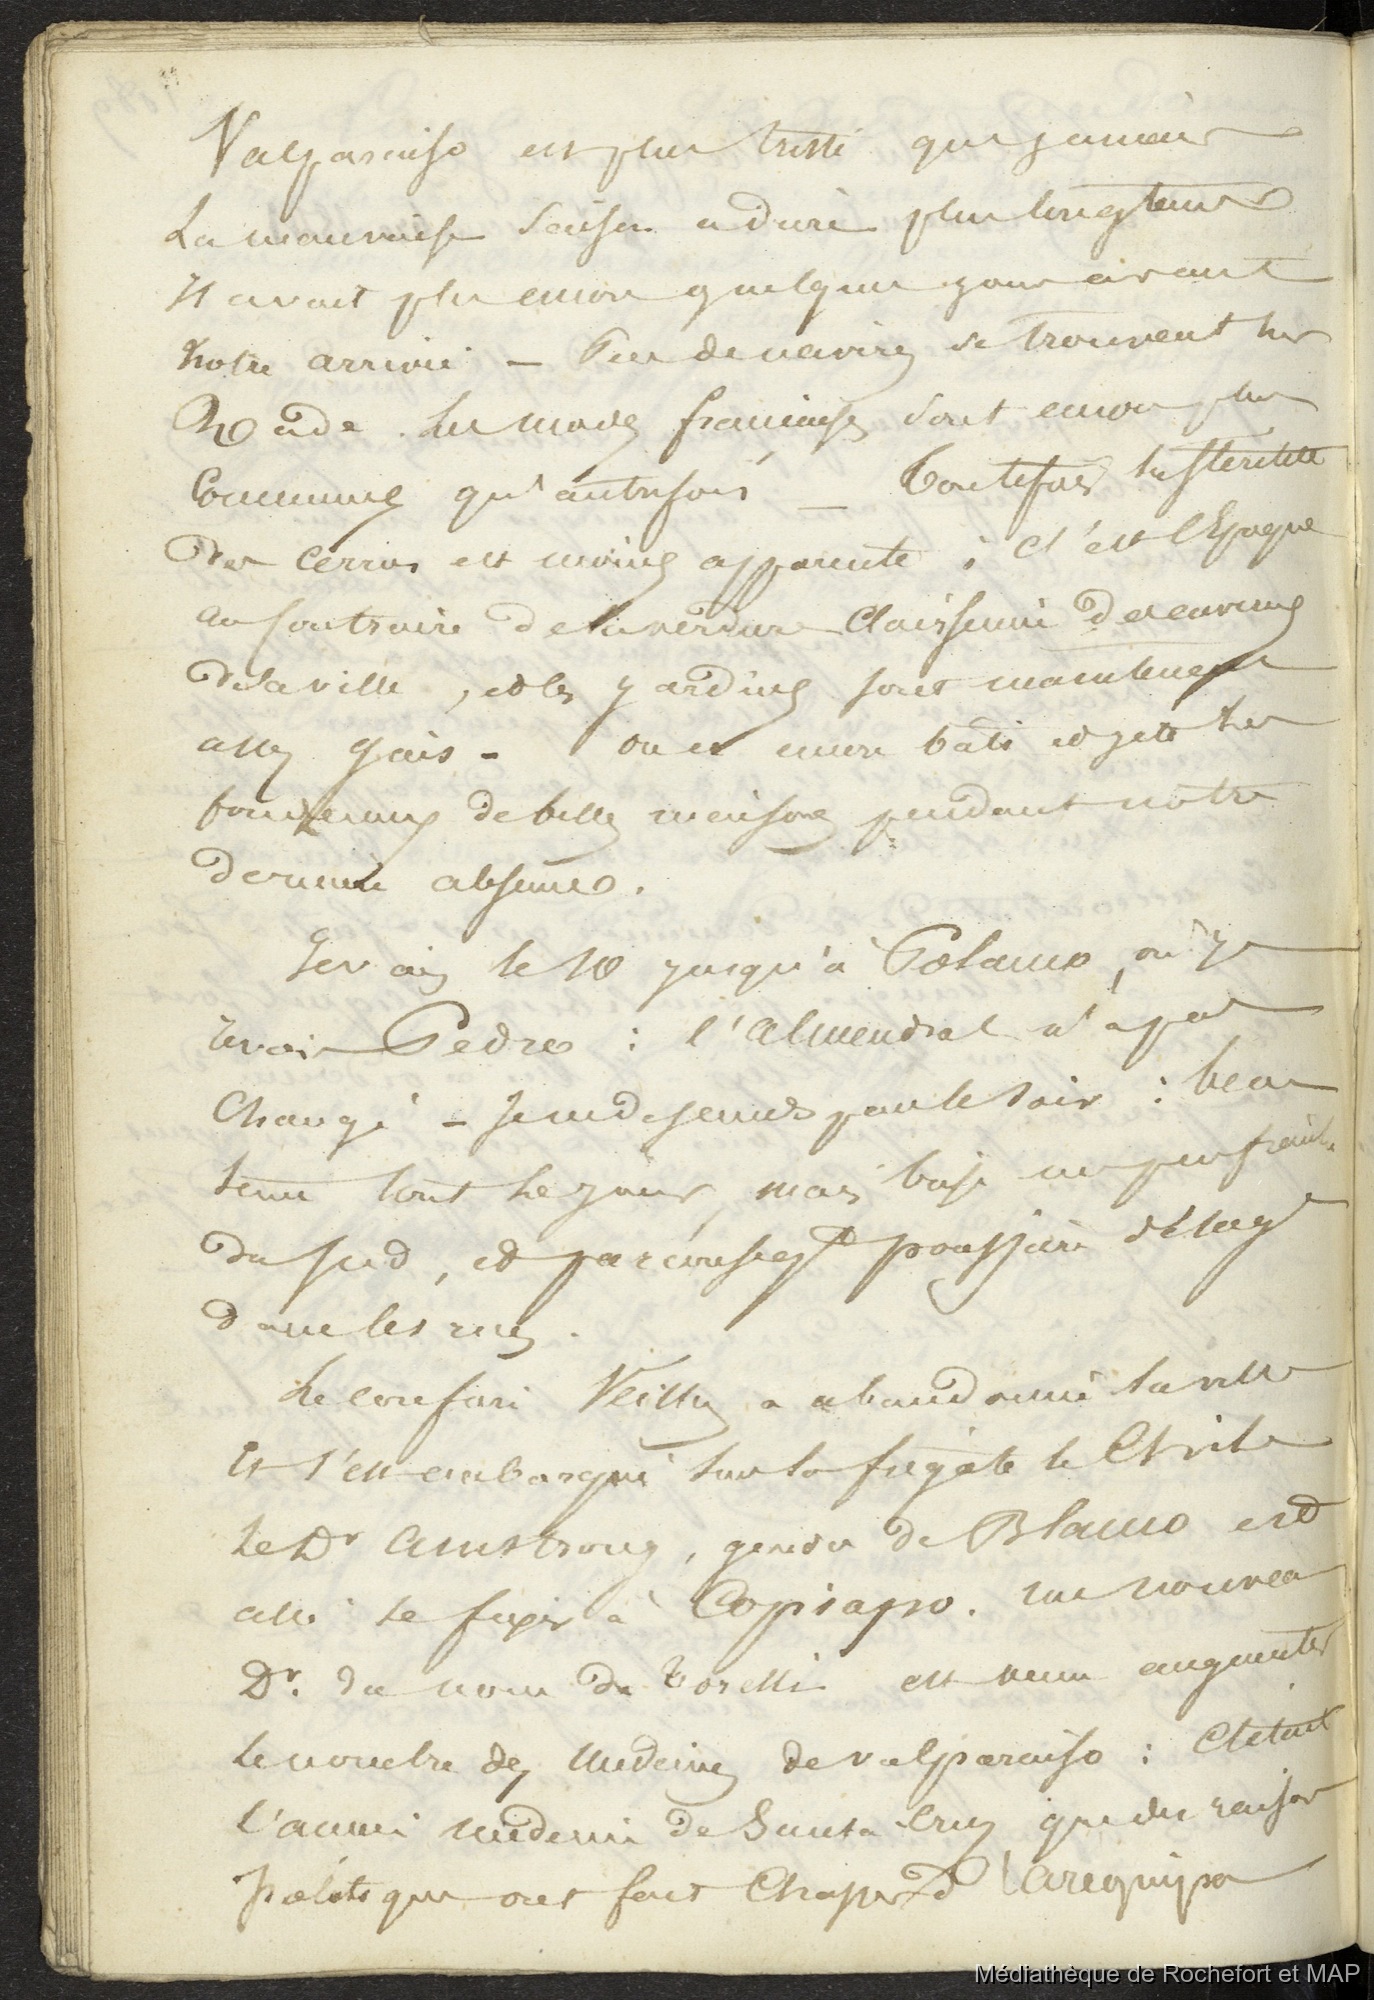 Valparaiso est plus triste que jamais
La mauvaise saison a duré plus longtems
Il avait plu encore quelques jours avant
notre arrivée – Peu de navires se trouvent sur
Rade. Les modes françaises sont encore plus
Communes qu'autrefois – Toutefois la sterilité
des Cerros est moins apparente ; C'est l'Epoque
au contraire de la verdure Clairsemée des environs
de la ville, et les jardins sont maintenant
assez gais – on a encore bati et jeté les
fondemens de belles maisons pendant notre
derniere absence.
Je vais le 10 jusqu'à Polanco, où je
revois Pedro : l'Almendral n'a pas
Changé – Je descends par le soir : beau
tems tout le jour, mais brise un peu fraiche
du sud, et par poussiere
dans les rues.
Le confrere Veillez a abandonné la ville
Et s'est embarqué sur la frégate le Chili
Le Dr Amstrong, gendre de Blanco est
allé se fixer à Copiapo. un nouveau
Dr. du nom de Torelli est venu augmenter
le nombre des Medecins de valparaiso : C'etait
l'ancien medecin de Santa Cruz que des raisons
Politiques ont fait Chasser d'Arequipa
Médiathèque de Rochefort et MAP